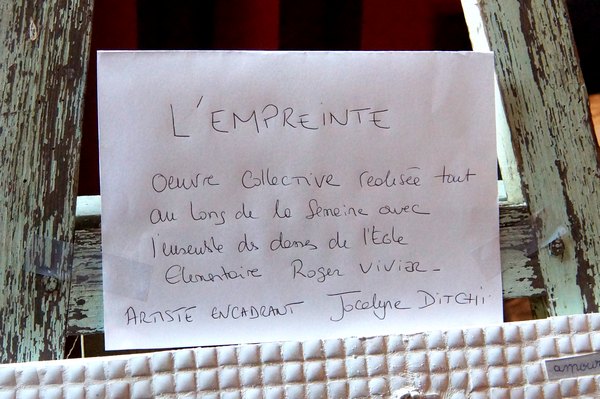 L'EMPREINTE
Oeuvre Collective realisée tout
au long de la Semaine avec
l'ensemble des classes de l'Ecole
Elementaire Roger VIVIER_
ARTISTE ENCADRANT Jocelyne DITCHI
amour